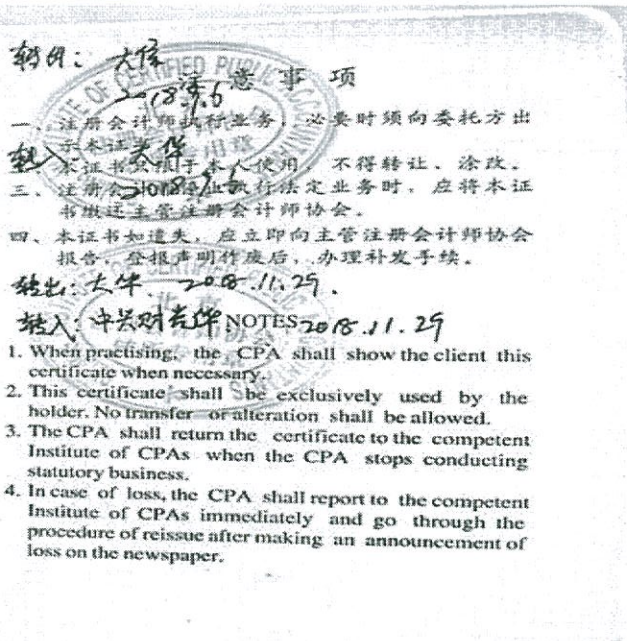 转出：大信
2018.9.6
注意事项
一、注册会计师执行业务，必要时须向委托方出
示本证
转入：大华
本证书只限于本人使用，不得转让、涂改。
2018.9.6
三、注册会计师停止执行法定业务时，应将本证
书缴还主管注册会计师协会。
四、本证书如遗失，应立即向主管注册会计师协会
报告，登报声明作废后，办理补发手续。
转出：大华 2018.11.29.
转入：中兴财光华 2018.11.29
NOTES
1. When practising, the CPA shall show the client this
certificate when necessary.
2. This certificate shall be exclusively used by the
holder. No transfer or alteration shall be allowed.
3. The CPA shall return the certificate to the competent
Institute of CPAs when the CPA stops conducting
statutory business.
4. In case of loss, the CPA shall report to the competent
Institute of CPAs immediately and go through the
procedure of reissue after making an announcement of
loss on the newspaper.